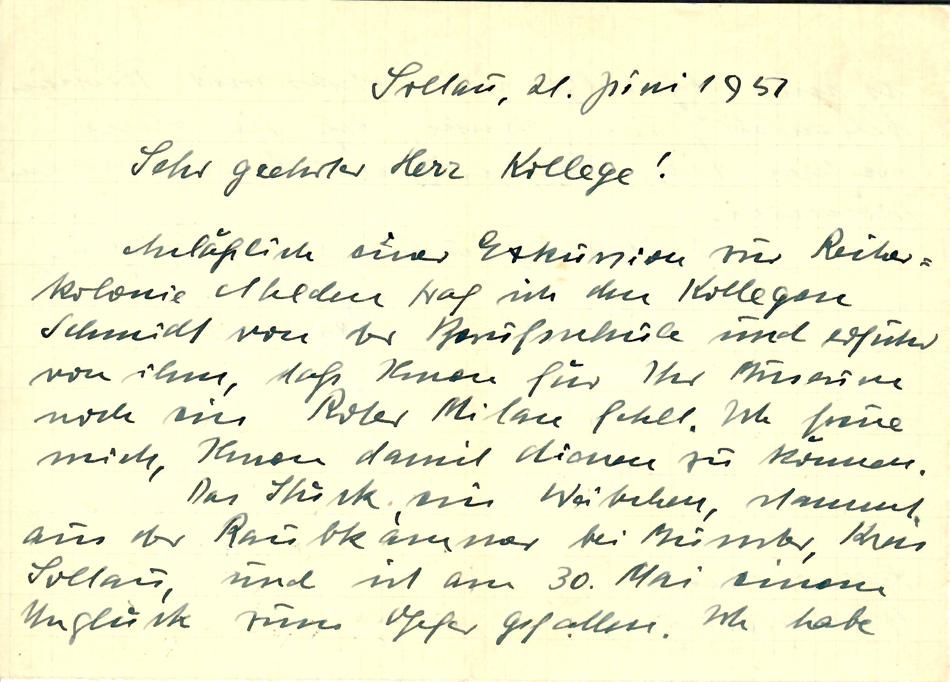 Soltau, 21. Juni 1951
Sehr geehrter Herr Kollege!
Anläßlich einer Exkursion zur Reiher=
kolonie Ahlden traf ich den Kollegen
Schmidt von der Berufsschule und erfuhr
von ihm, daß Ihnen für Ihr Museum
noch ein Roter Milan fehlt. Ich freue
mich, Ihnen damit dienen zu können.
Das Stück, ein Weibchen, stammt
aus der Raubkammer bei Munster, Kreis
Soltau, und ist am 30. Mai einem
Unglück zum Opfer gefallen. Ich habe